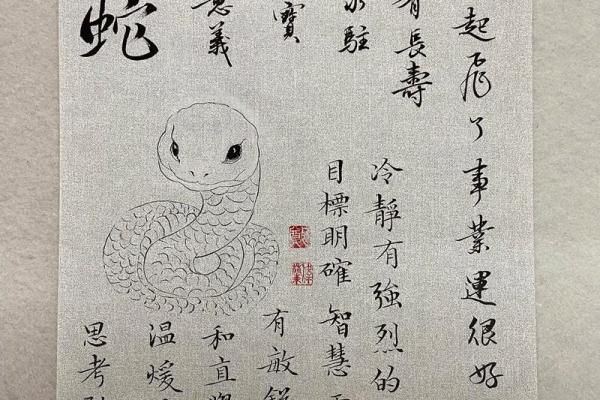 起飛了事業運很好
有長壽
冷靜有強烈的
駐
目標明確智慧
寶
有敏銳
意義
和直覺
溫暖
蛇
思考